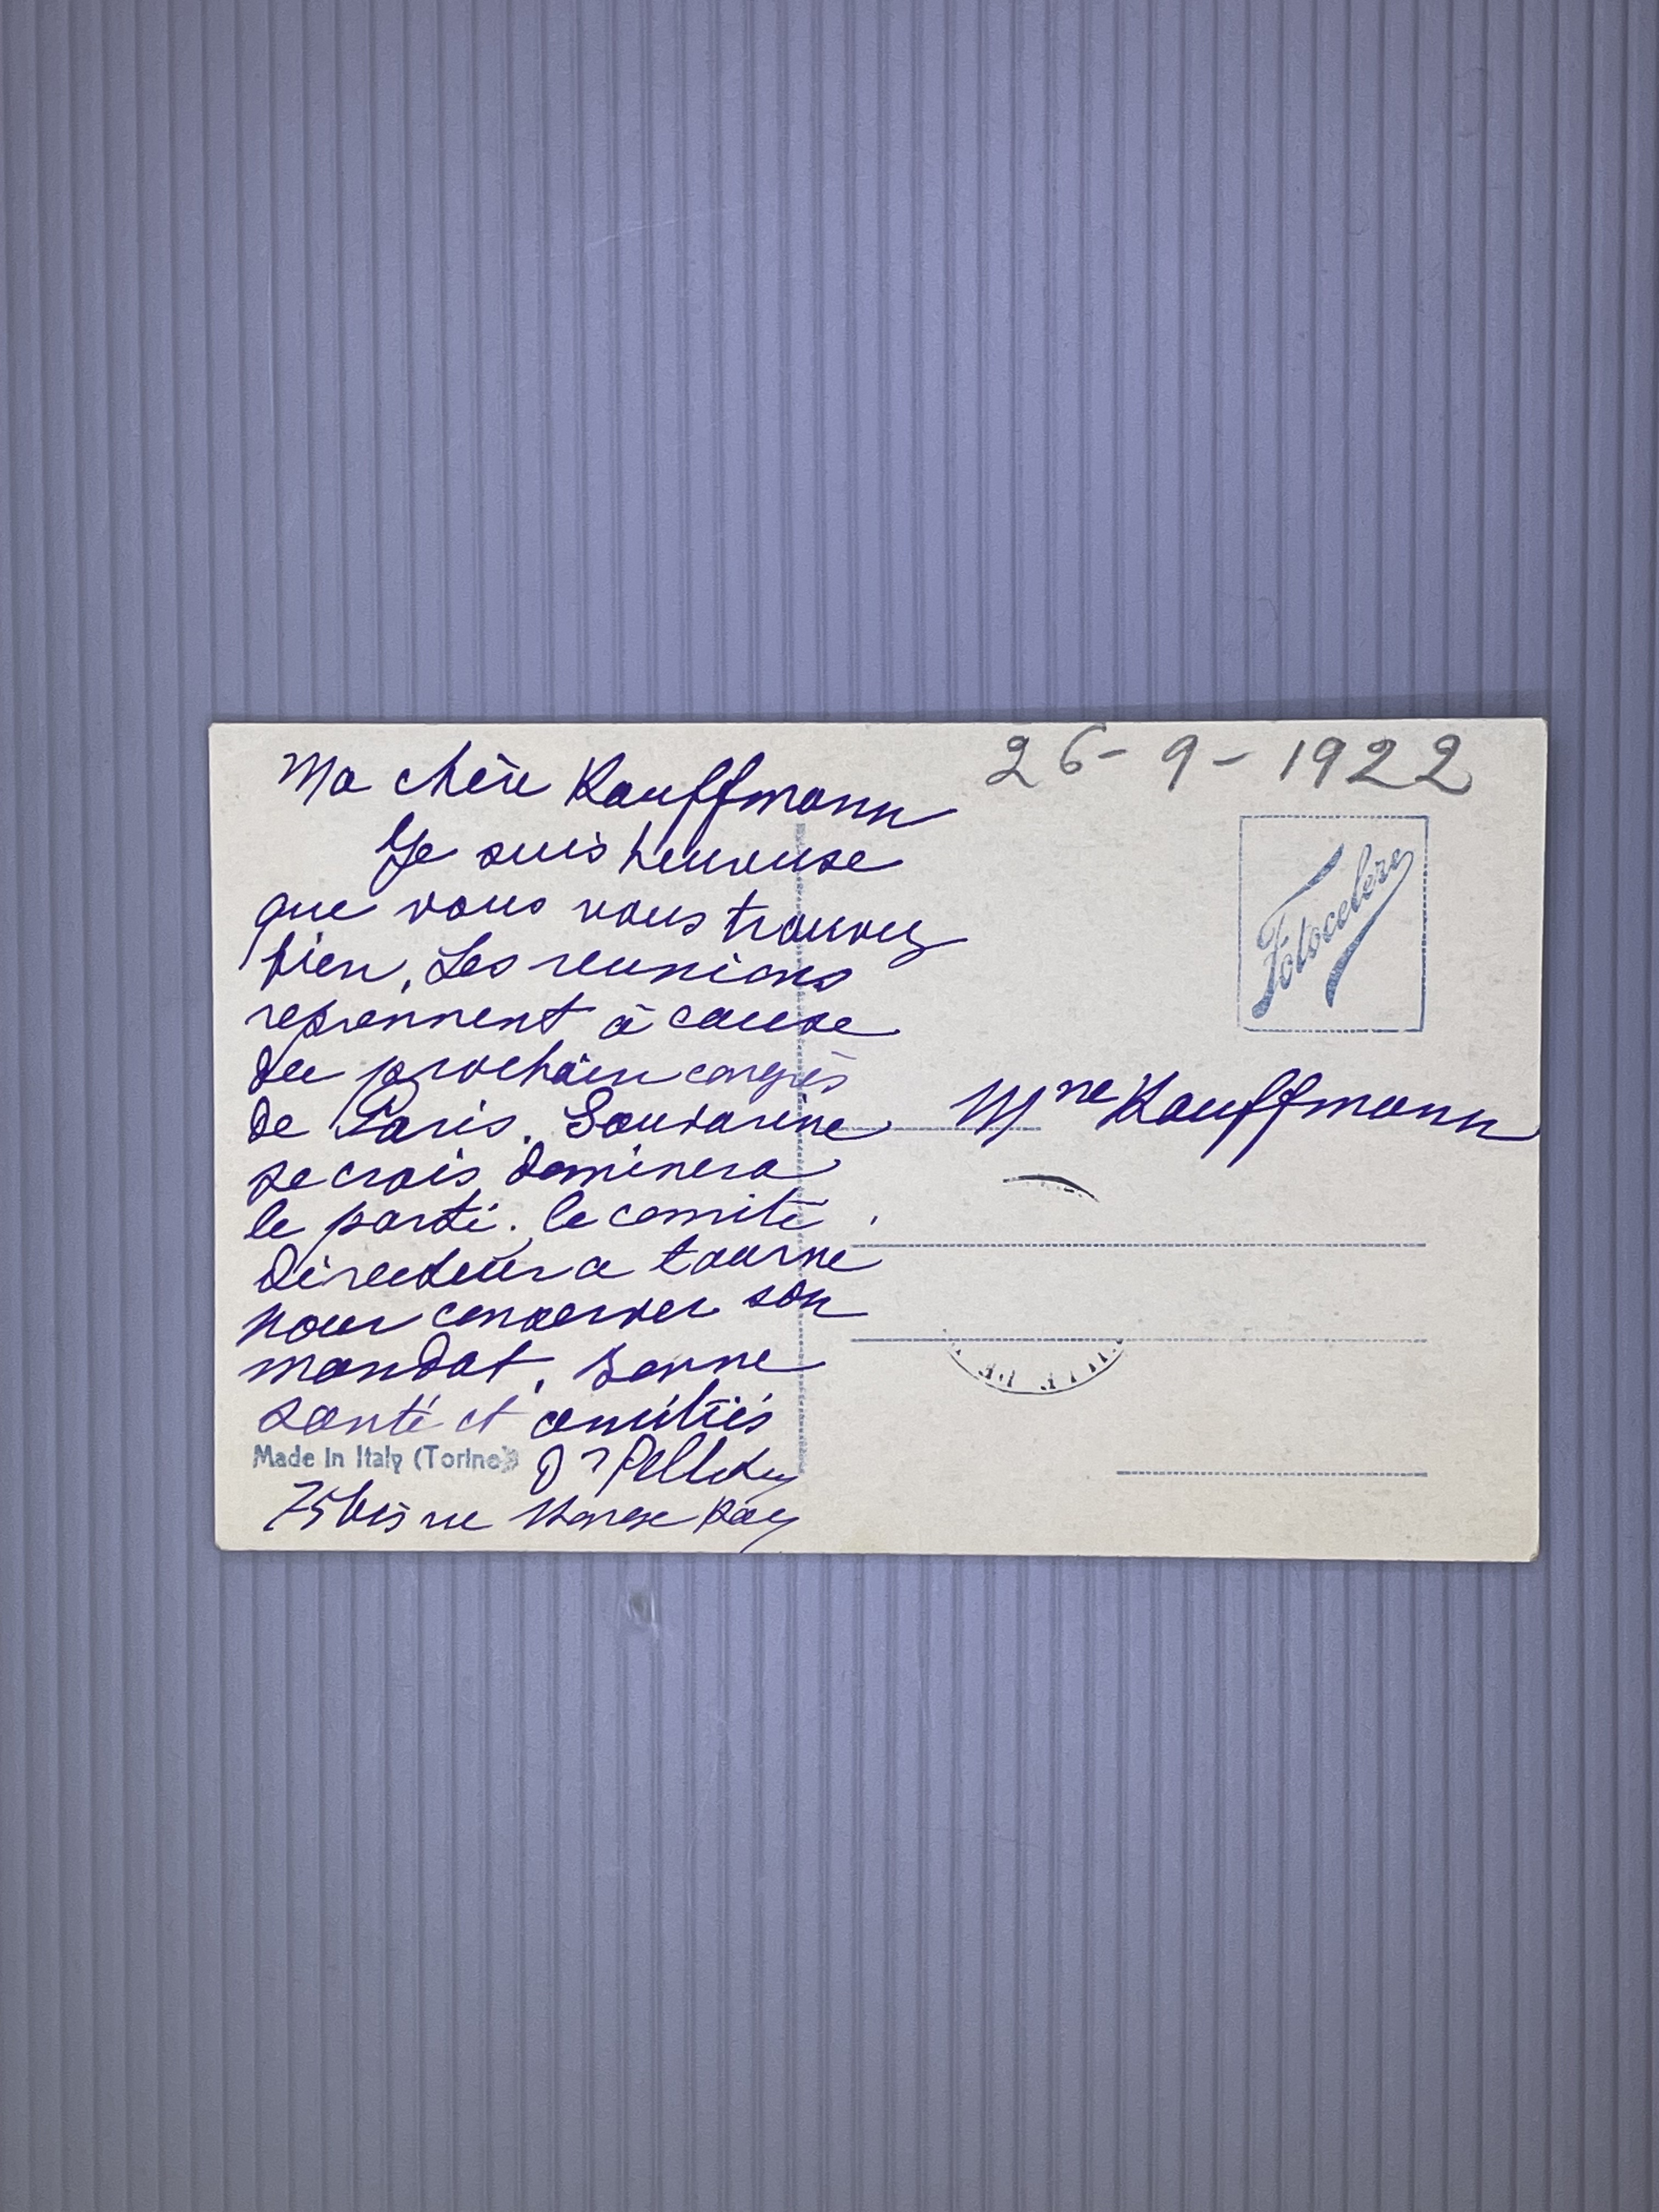 26-9-1922
Ma chère Kauffmann
Je suis heureuse
que vous vous trouvez
bien. Les reunions
reprennent à cause
du prochain congrès
de Paris. Souvarine
je crois dominera
le parti. le comité
directeur a tourné
pour conserver son
mandat. Bonne
santé et amitiés
Dr Pelletier
75 bis rue Monge
Made in Italy (Torino)
Fotocelere
Mme Kauffmann